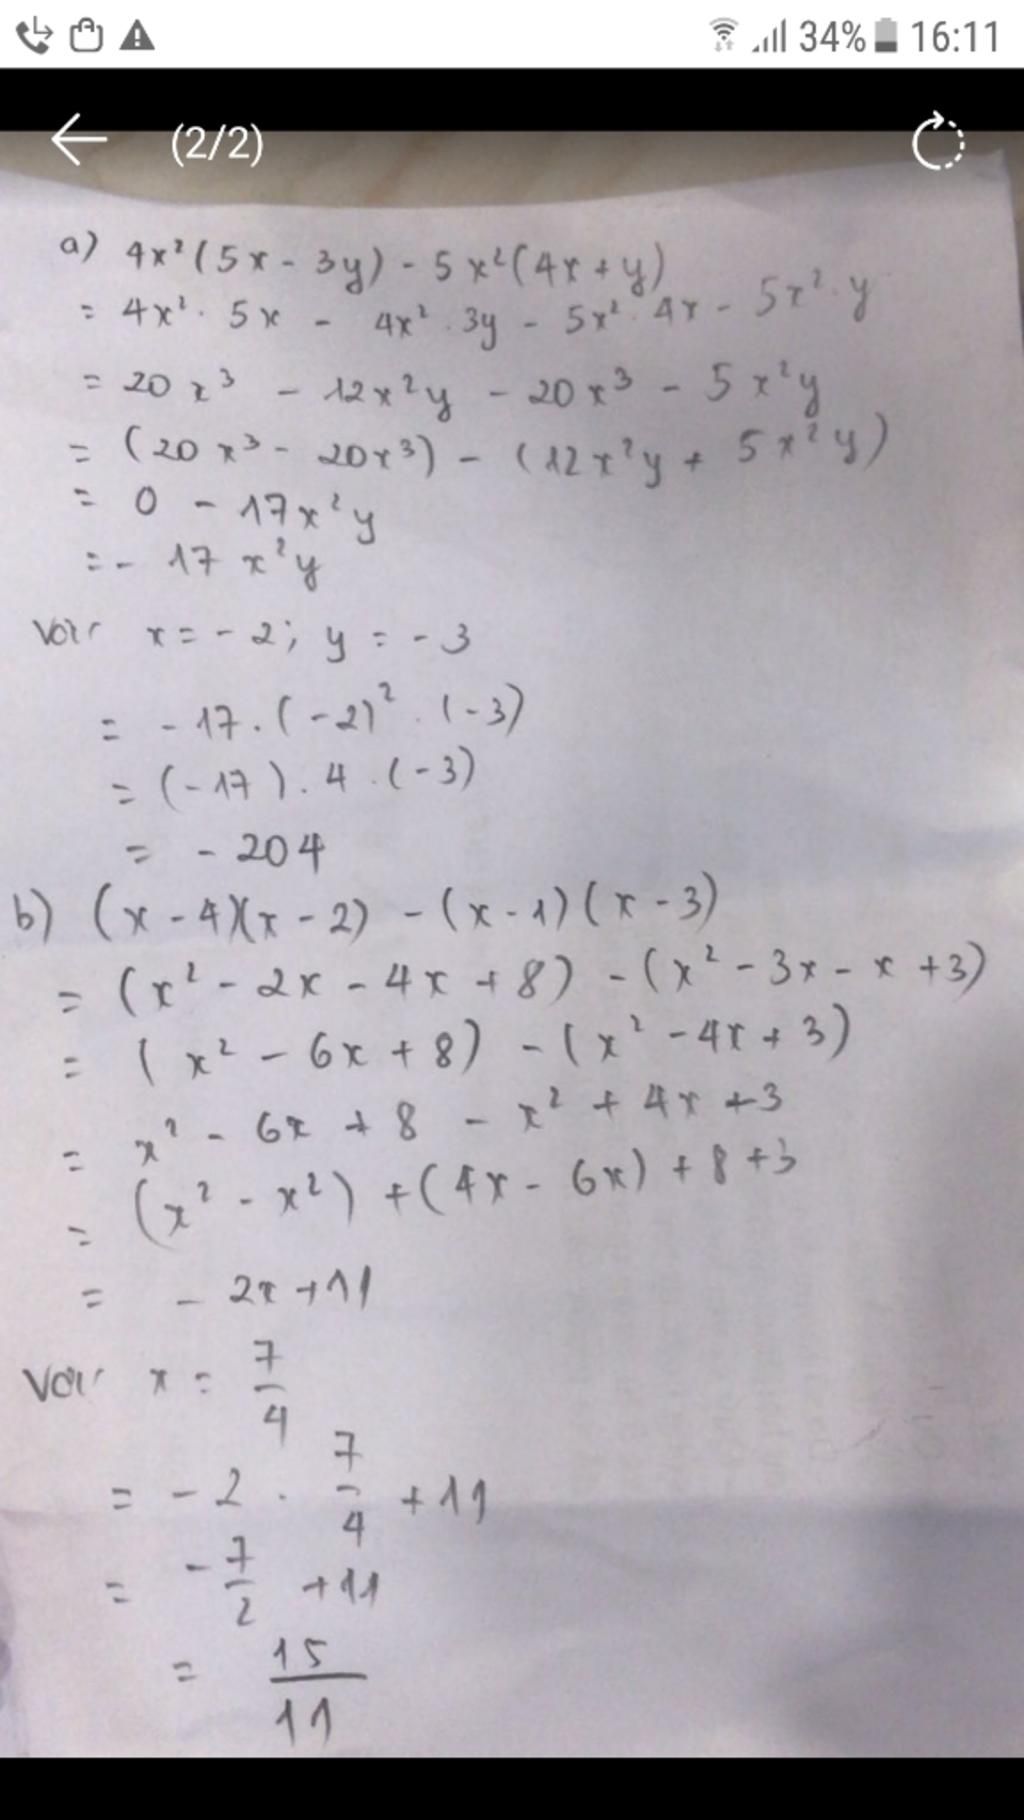 34% 16:11
(2/2)
a) 4x²(5x - 3y) - 5x²(4x + y)
= 4x². 5x - 4x². 3y - 5x². 4x - 5x². y
= 20x³ - 12x²y - 20x³ - 5x²y
= (20x³ - 20x³) - (12x²y + 5x²y)
= 0 - 17x²y
= - 17x²y
Với x = - 2; y = - 3
= - 17. (-2)². (-3)
= (-17). 4. (-3)
= - 204
b) (x - 4)(x - 2) - (x - 1)(x - 3)
= (x² - 2x - 4x + 8) - (x² - 3x - x + 3)
= (x² - 6x + 8) - (x² - 4x + 3)
= x² - 6x + 8 - x² + 4x + 3
= (x² - x²) + (4x - 6x) + 8 + 3
= - 2x + 11
Với x = 7/4
= - 2. 7/4 + 11
= - 7/2 + 11
= 15/11